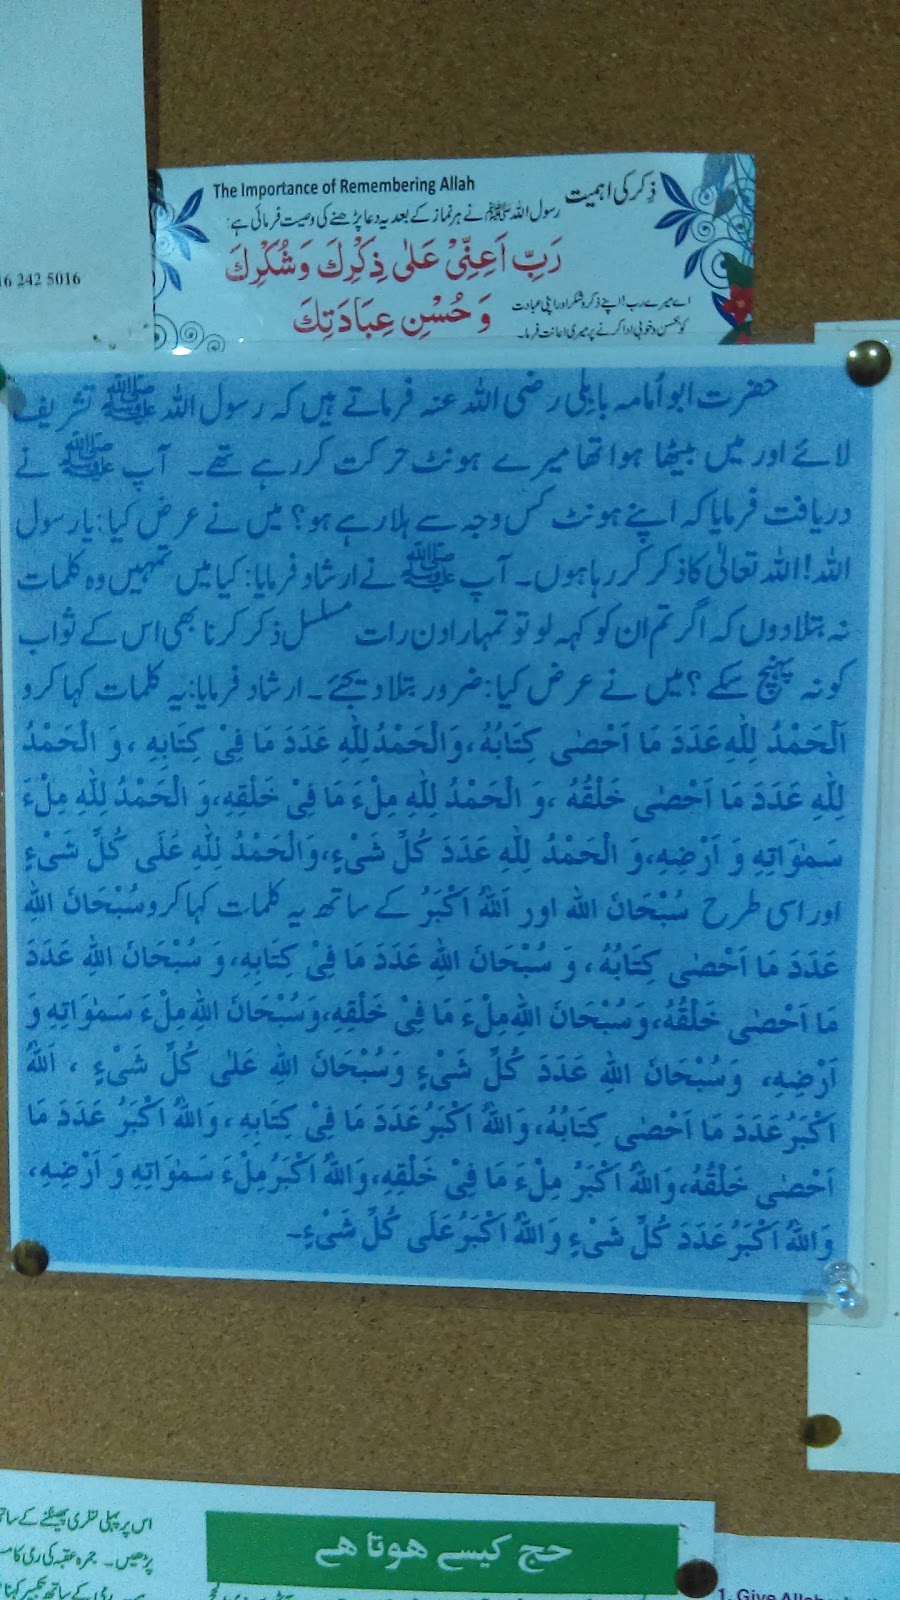 16 242 5016
The Importance of Remembering Allah
ذِکر کی اہمیت
رسول اللہ ﷺ نے ہر نماز کے بعد یہ دعا پڑھنے کی وصیت فرمائی ہے:
رَبِّ اَعِنِّیْ عَلٰی ذِکْرِكَ وَشُکْرِكَ
وَ حُسْنِ عِبَادَتِكَ
اے میرے رب! اپنے ذکر و شکر اور اپنی عبادت
کو بحسن و خوبی ادا کرنے پر میری اعانت فرما۔
حضرت ابو اُمامہ باہلی رضی اللہ عنہ فرماتے ہیں کہ رسول اللہ ﷺ تشریف
لائے اور میں بیٹھا ہوا تھا میرے ہونٹ حرکت کر رہے تھے۔ آپ ﷺ نے
دریافت فرمایا کہ اپنے ہونٹ کس وجہ سے ہلا رہے ہو؟ میں نے عرض کیا: یا رسول
اللہ! اللہ تعالٰی کا ذکر کر رہا ہوں۔ آپ ﷺ نے ارشاد فرمایا: کیا میں تمہیں وہ کلمات
نہ بتلا دوں کہ اگر تم ان کو کہہ لو تو تمہارا دن رات مسلسل ذکر کرنا بھی اس کے ثواب
کو نہ پہنچ سکے؟ میں نے عرض کیا: ضرور بتلا دیجئے۔ ارشاد فرمایا: یہ کلمات کہا کرو
اَلْحَمْدُ لِلّٰهِ عَدَدَ مَا اَحْصٰی کِتَابُهُ، وَالْحَمْدُ لِلّٰهِ عَدَدَ مَا فِیْ کِتَابِهِ، وَ الْحَمْدُ
لِلّٰهِ عَدَدَ مَا اَحْصٰی خَلْقُهُ، وَ الْحَمْدُ لِلّٰهِ مِلْءَ مَا فِیْ خَلْقِهِ، وَ الْحَمْدُ لِلّٰهِ مِلْءَ
سَمٰوَاتِهِ وَ اَرْضِهِ، وَ الْحَمْدُ لِلّٰهِ عَدَدَ کُلِّ شَیْءٍ، وَالْحَمْدُ لِلّٰهِ عَلَی کُلِّ شَیْءٍ
اور اسی طرح سُبْحَانَ اللہ اور اَللهُ اَکْبَرُ کے ساتھ یہ کلمات کہا کرو سُبْحَانَ اللهِ
عَدَدَ مَا اَحْصٰی کِتَابُهُ، وَ سُبْحَانَ اللهِ عَدَدَ مَا فِیْ کِتَابِهِ، وَ سُبْحَانَ اللهِ عَدَدَ
مَا اَحْصٰی خَلْقُهُ، وَسُبْحَانَ اللهِ مِلْءَ مَا فِیْ خَلْقِهِ، وَسُبْحَانَ اللهِ مِلْءَ سَمٰوَاتِهِ وَ
اَرْضِهِ، وَسُبْحَانَ اللهِ عَدَدَ کُلِّ شَیْءٍ وَسُبْحَانَ اللهِ عَلٰی کُلِّ شَیْءٍ، اَللهُ
اَکْبَرُ عَدَدَ مَا اَحْصٰی کِتَابُهُ، وَاللهُ اَکْبَرُ عَدَدَ مَا فِیْ کِتَابِهِ، وَاللهُ اَکْبَرُ عَدَدَ مَا
اَحْصٰی خَلْقُهُ، وَاللهُ اَکْبَرُ مِلْءَ مَا فِیْ خَلْقِهِ، وَاللهُ اَکْبَرُ مِلْءَ سَمٰوَاتِهِ وَ اَرْضِهِ،
وَاللهُ اَکْبَرُ عَدَدَ کُلِّ شَیْءٍ وَاللهُ اَکْبَرُ عَلَی کُلِّ شَیْءٍ۔
اس پر پہلی کنکری پھینکنے کے ساتھ
پڑھیں۔ جمرہ عقبہ کی رمی کا
رمی کے ساتھ تکبیر کہنا
حج کیسے ہوتا ہے
1. Give